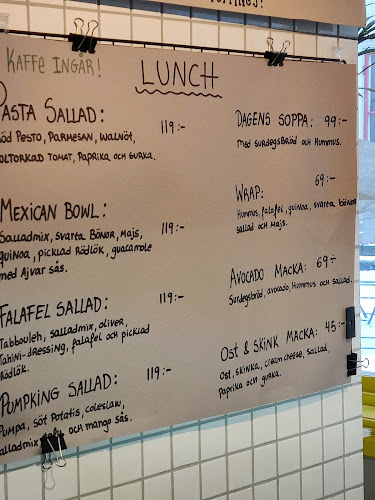 KAFFE INGÅR!
LUNCH
PASTA SALLAD: 119:-
Röd Pesto, Parmesan, Walnöt,
Soltorkad Tomat, Paprika och Gurka.
MEXICAN BOWL: 119:-
Salladmix, svarta Bönor, Majs,
quinoa, picklad Rödlök, guacamole
med Ajvar sås.
FALAFEL SALLAD: 119:-
Tabbouleh, salladmix, oliver,
Tahini-dressing, falafel och picklad
Rödlök.
PUMPKING SALLAD: 119:-
Pumpa, söt Potatis, coleslaw,
salladmix och mango sås.
DAGENS SOPPA: 99:-
med surdegsBröd och Hummus.
WRAP: 69:-
Hummus, falafel, quinoa, svarta bönor
sallad och Majs.
AVOCADO MACKA: 69:-
Surdegsbröd, avocado, Hummus och sallad.
OST & SKINK MACKA: 45:-
Ost, skinka, cream cheese, sallad,
Paprika och gurka.